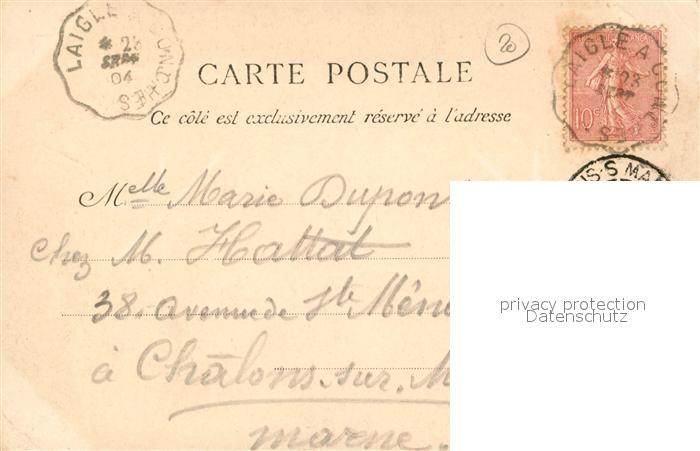 LAIGLE A CONCHES
* 23
SEPT
04
20
CARTE POSTALE
Ce côté est exclusivement réservé à l'adresse
10c
LAIGLE A CONC
* 23
SEPT
ES
S-S MA
Melle Marie Dupon
Chez M. Hattat
38. avenue de Ste Méne
à Châlons-sur-M
marne.
privacy protection
Datenschutz